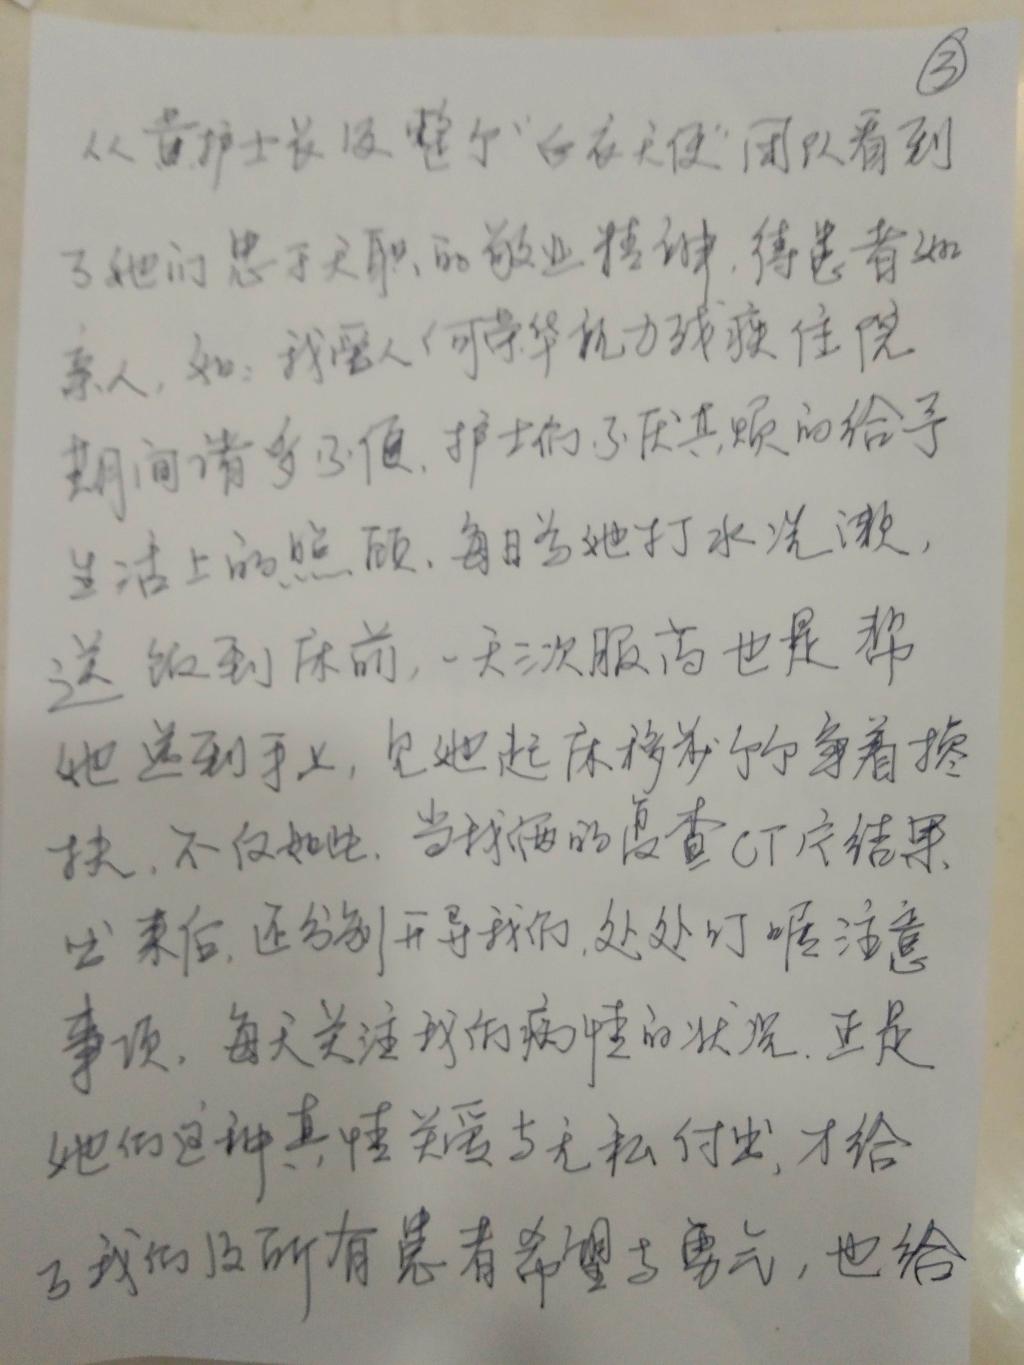 ③
从黄护士长及整个“白衣天使”团队看到
了她们忠于天职的敬业精神，待患者如
亲人，如：我爱人何荣华视力残疾住院
期间诸多不便，护士们不厌其烦的给予
生活上的照顾，每日为她打水洗漱，
送饭到床前，一天三次服药也是帮
她送到手上，见她起床移步个个争着搀
扶，不仅如此，当我俩的复查CT片结果
出来后，还分别开导我们，处处叮嘱注意
事项，每天关注我们病情的状况，正是
她们这种真情关爱与无私付出，才给
了我们及所有患者希望与勇气，也给